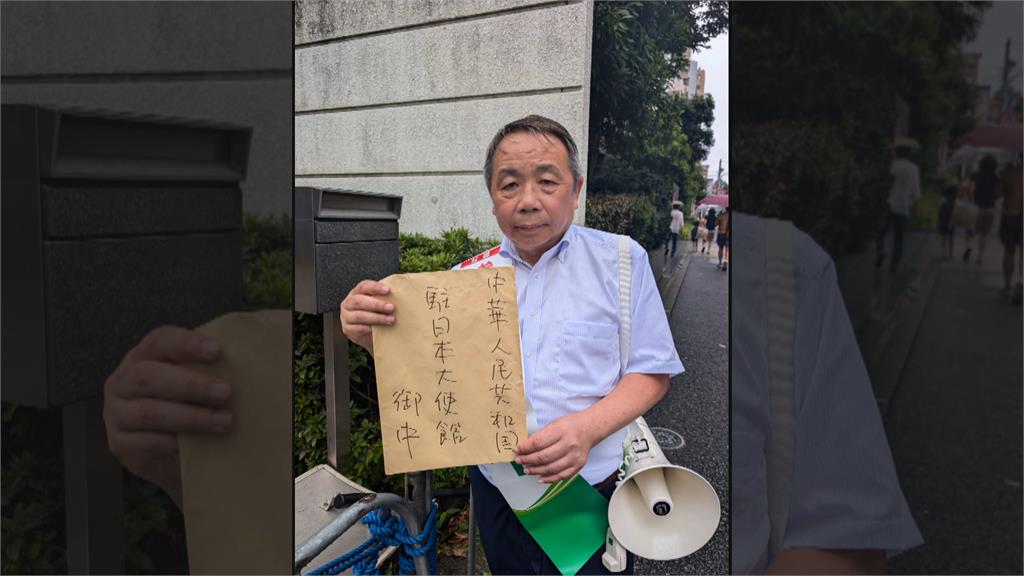 中華人民共和国
駐日本大使館
御中